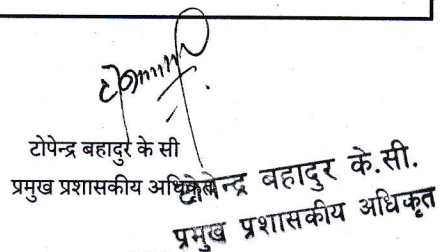 टोपेन्द्र बहादुर के सी
प्रमुख प्रशासकीय अधिकृत
टोपेन्द्र बहादुर के.सी.
प्रमुख प्रशासकीय अधिकृत